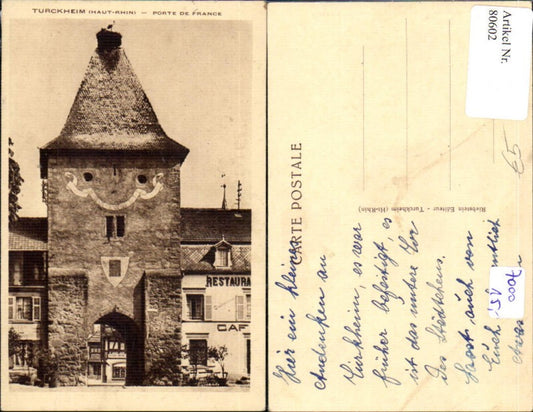 TURCKHEIM (HAUT-RHIN) — PORTE DE FRANCE
RESTAURA
CAF
Artikel Nr.
80602
€5
CARTE POSTALE
Riebstein Editeur - Turckheim (Ht-Rhin)
Hier ein kleines
Andenken an
Turkheim, es war
früher befestigt es
ist das untere Tor
des Städtchens.
auch von
Euch
7000
15,